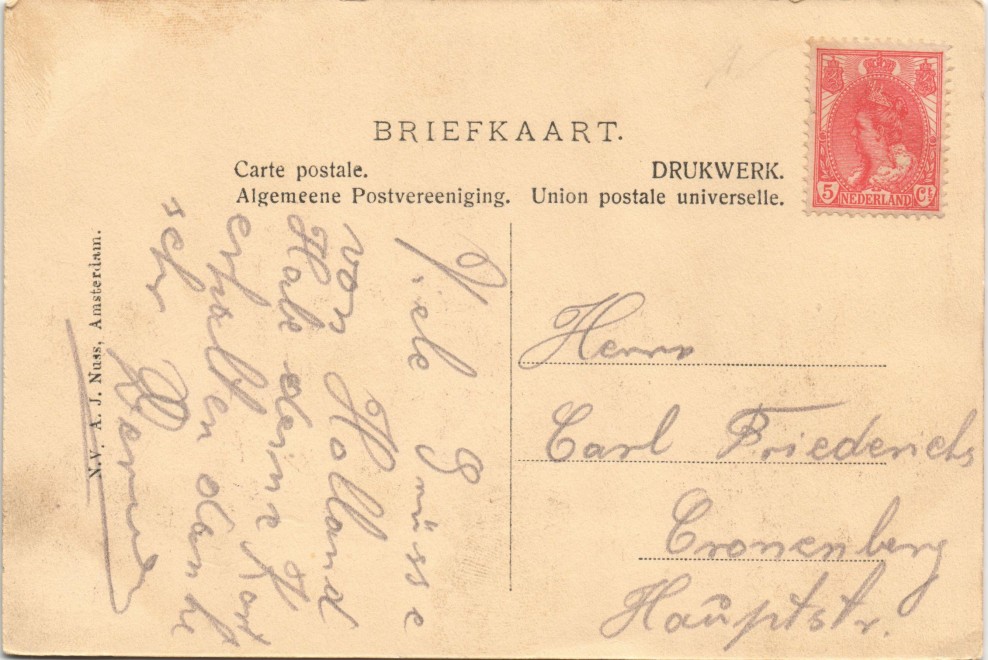 BRIEFKAART.
Carte postale. DRUKWERK.
Algemeene Postvereeniging. Union postale universelle.
5 NEDERLAND Ct
N.V. A. J. Nuss, Amsterdam.
Viele Grüsse
von Holland
Habe deine Kart
erhalten danke
"sehr
Herrn
Carl Friederichs
Cronenberg
Hauptstr.